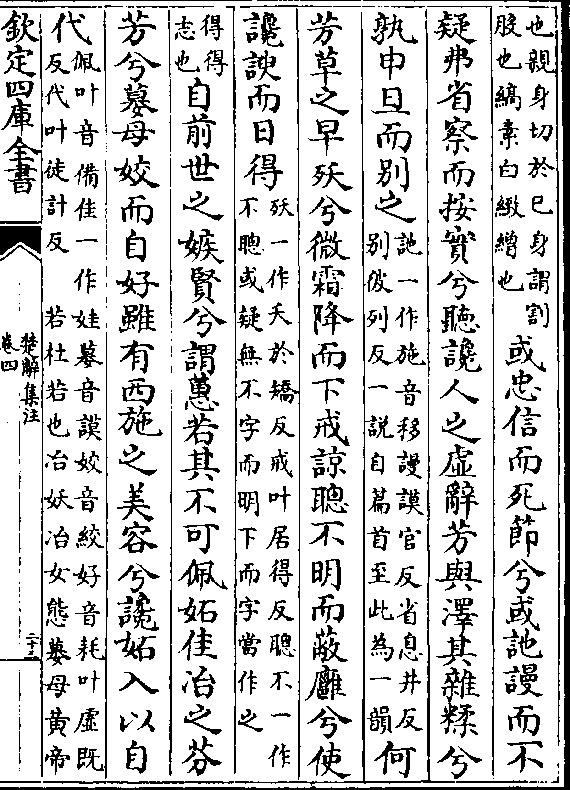 也親身切於已身謂割
股也縞素白緻繒也
或忠信而死節兮或訑謾而不
疑弗省察而按實兮聽讒人之虛辭芳與澤其雜糅兮
孰申旦而別之
訑一作施音移謾謨官反省息井反
別彼列反一說自篇首至此為一韻
何
芳草之早殀兮微霜降而下戒諒聰不明而蔽廱兮使
讒諛而日得
殀一作夭於矯反戒叶居得反聰不一作
不聰或疑無不字而明下而字當作之
得得
志也
自前世之嫉賢兮謂蕙若其不可佩妬佳冶之芬
芳兮嫫母姣而自好雖有西施之美容兮讒妬入以自
代
佩叶音備佳一作娃嫫音謨姣音絞好音耗叶虛既
反代叶徒計反　若杜若也冶妖冶女態嫫母黃帝
欽定四庫全書
楚辭集注
卷四